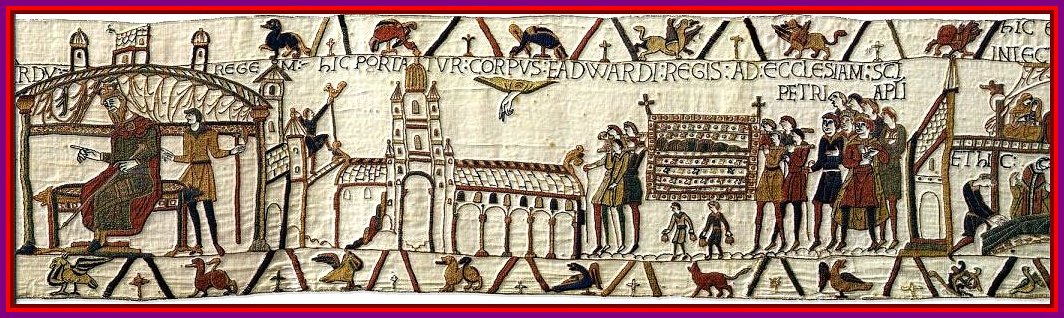 RDV: REGEM:- hIC PORTATVR: CORPVS: EADWARDI: REGIS: AD: ECCLESIAM: SCI
PETRI APLI
hIC E
INLECT
ET hIC: